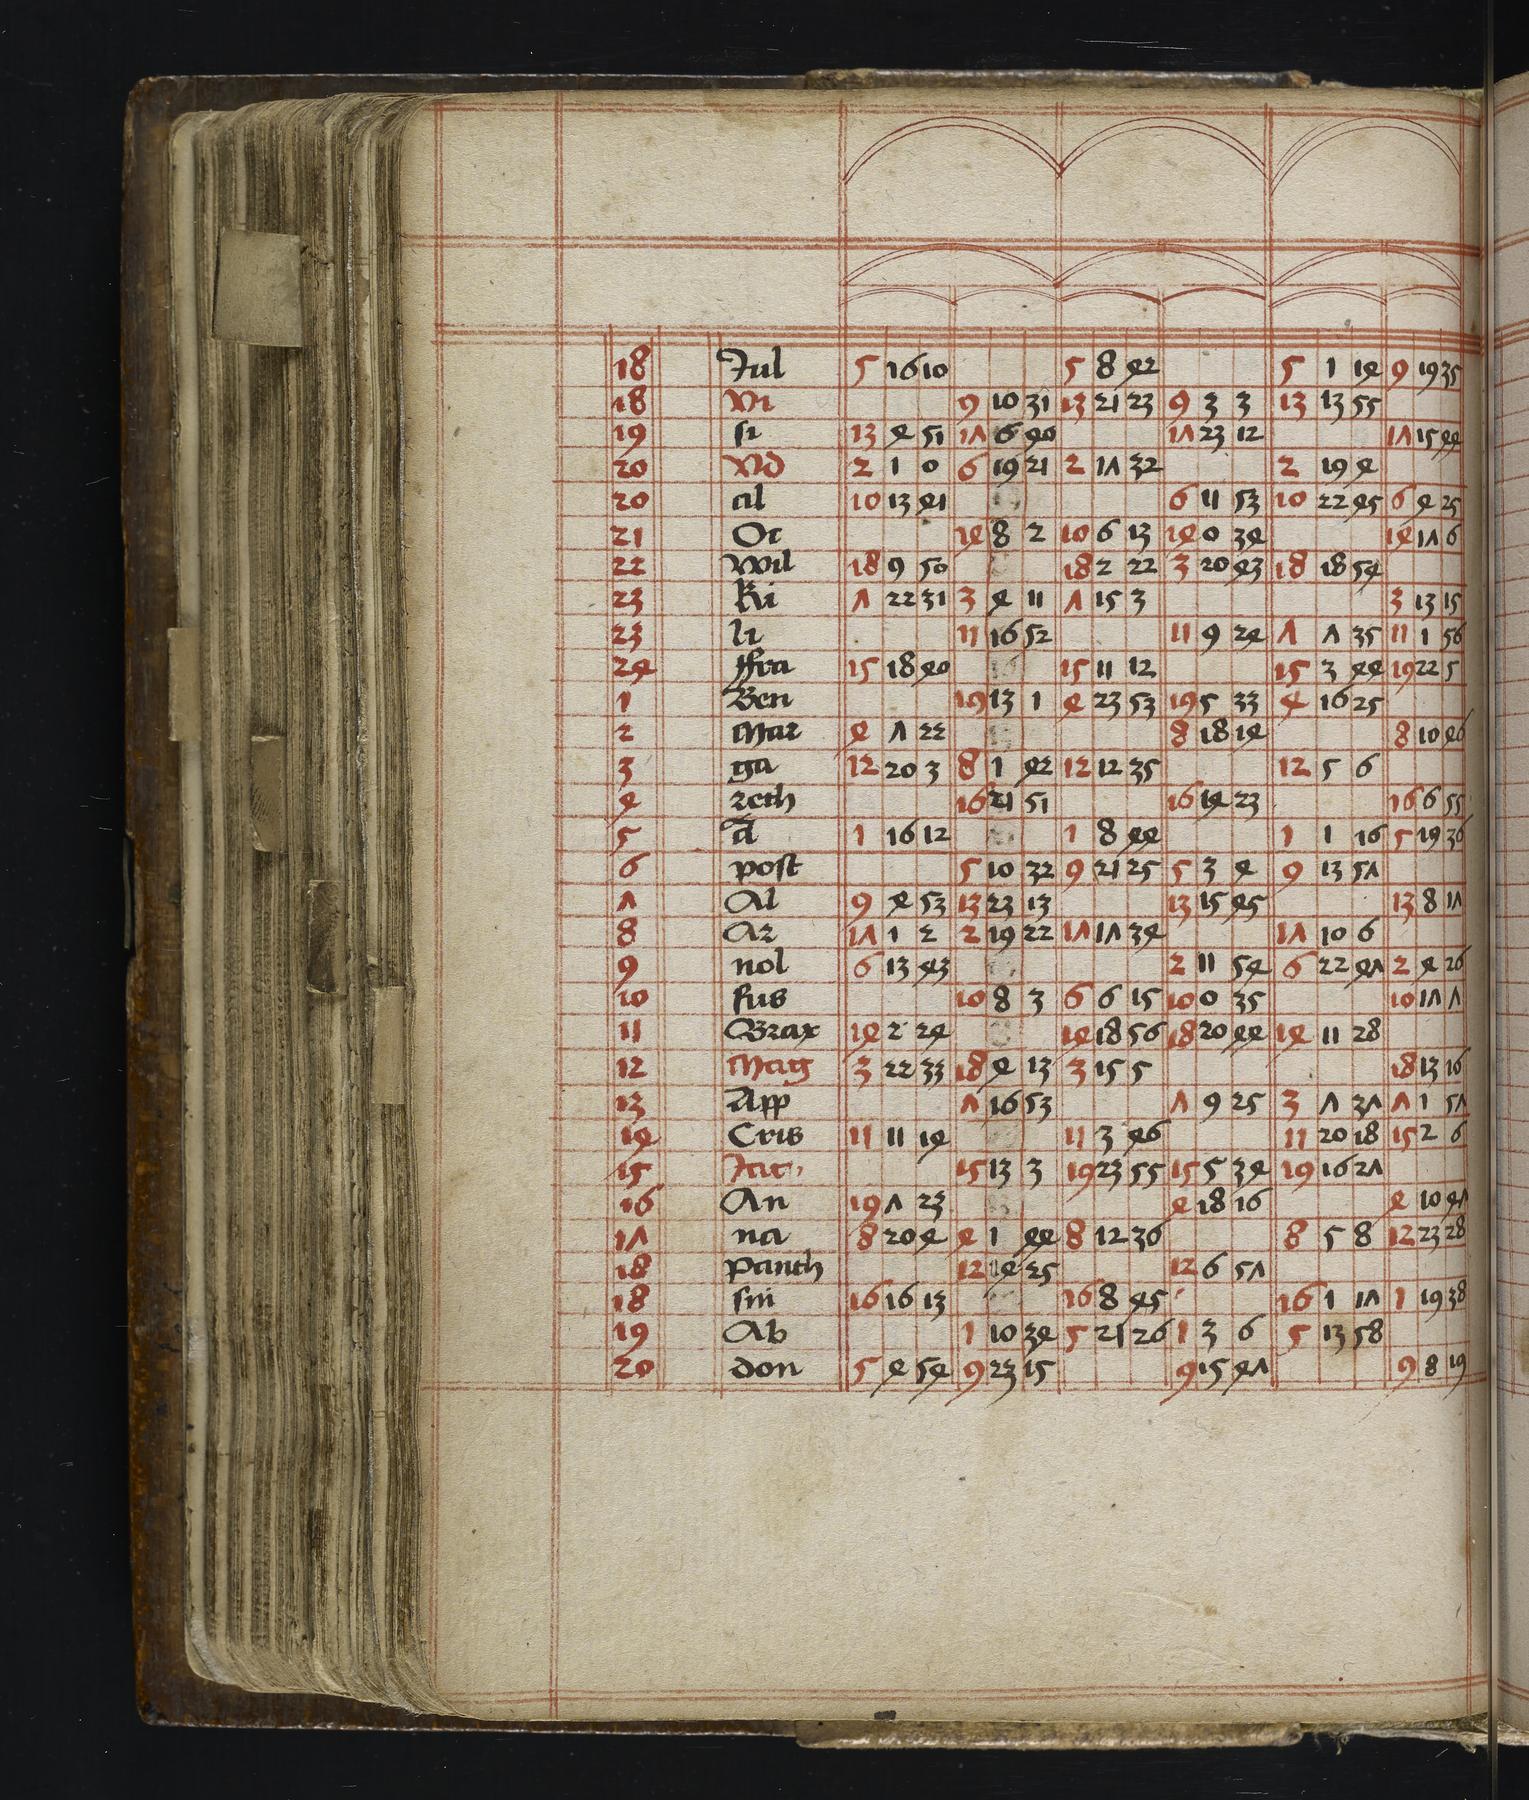 18 Jul 5 16 10 5 8 42 5 1 14 9 19 35
18 Vi 9 10 31 13 21 23 9 3 3 13 13 55
19 si 13 4 51 17 6 40 17 23 12 17 15 44
20 Vd 2 1 0 6 19 21 2 17 32 2 19 4
20 al 10 13 41 6 11 53 10 22 45 6 4 25
21 Oc 14 8 2 10 6 13 14 0 34 14 17 6
22 Wil 18 9 50 18 2 22 3 20 43 18 18 54
23 Ki 7 22 31 3 4 11 7 15 3 3 13 15
23 li 11 16 52 11 9 24 7 7 35 11 1 56
24 ffra 15 18 40 15 11 12 15 3 44 19 22 5
1 Ben 19 13 1 4 23 53 19 5 33 4 16 25
2 Mar 4 7 22 8 18 14 8 10 46
3 ga 12 20 3 8 1 42 12 12 35 12 5 6
4 reth 16 21 51 16 14 23 16 6 55
5 a 1 16 12 1 8 44 1 1 16 5 19 36
6 post 5 10 32 9 21 25 5 3 4 9 13 57
7 Al 9 4 53 13 23 13 13 15 45 13 8 17
8 Ar 17 1 2 2 19 22 17 17 34 17 10 6
9 nol 6 13 43 2 11 54 6 22 47 2 4 26
10 fus 10 8 3 6 6 15 10 0 35 10 17 7
11 Brax 14 2 24 14 18 56 18 20 44 14 11 28
12 Mag 3 22 33 18 4 13 3 15 5 18 13 16
13 App 7 16 53 7 9 25 3 7 37 7 1 57
14 Cris 11 11 14 11 3 46 11 20 18 15 2 6
15 Jac 15 13 3 19 23 55 15 5 34 19 16 27
16 An 19 7 23 4 18 16 4 10 47
17 na 8 20 4 4 1 44 8 12 36 8 5 8 12 23 28
18 Panth 12 14 25 12 6 57
18 sm 16 16 13 16 8 45 16 1 17 1 19 38
19 Ab 1 10 34 5 21 26 1 3 6 5 13 58
20 don 5 4 54 9 23 15 9 15 47 9 8 19